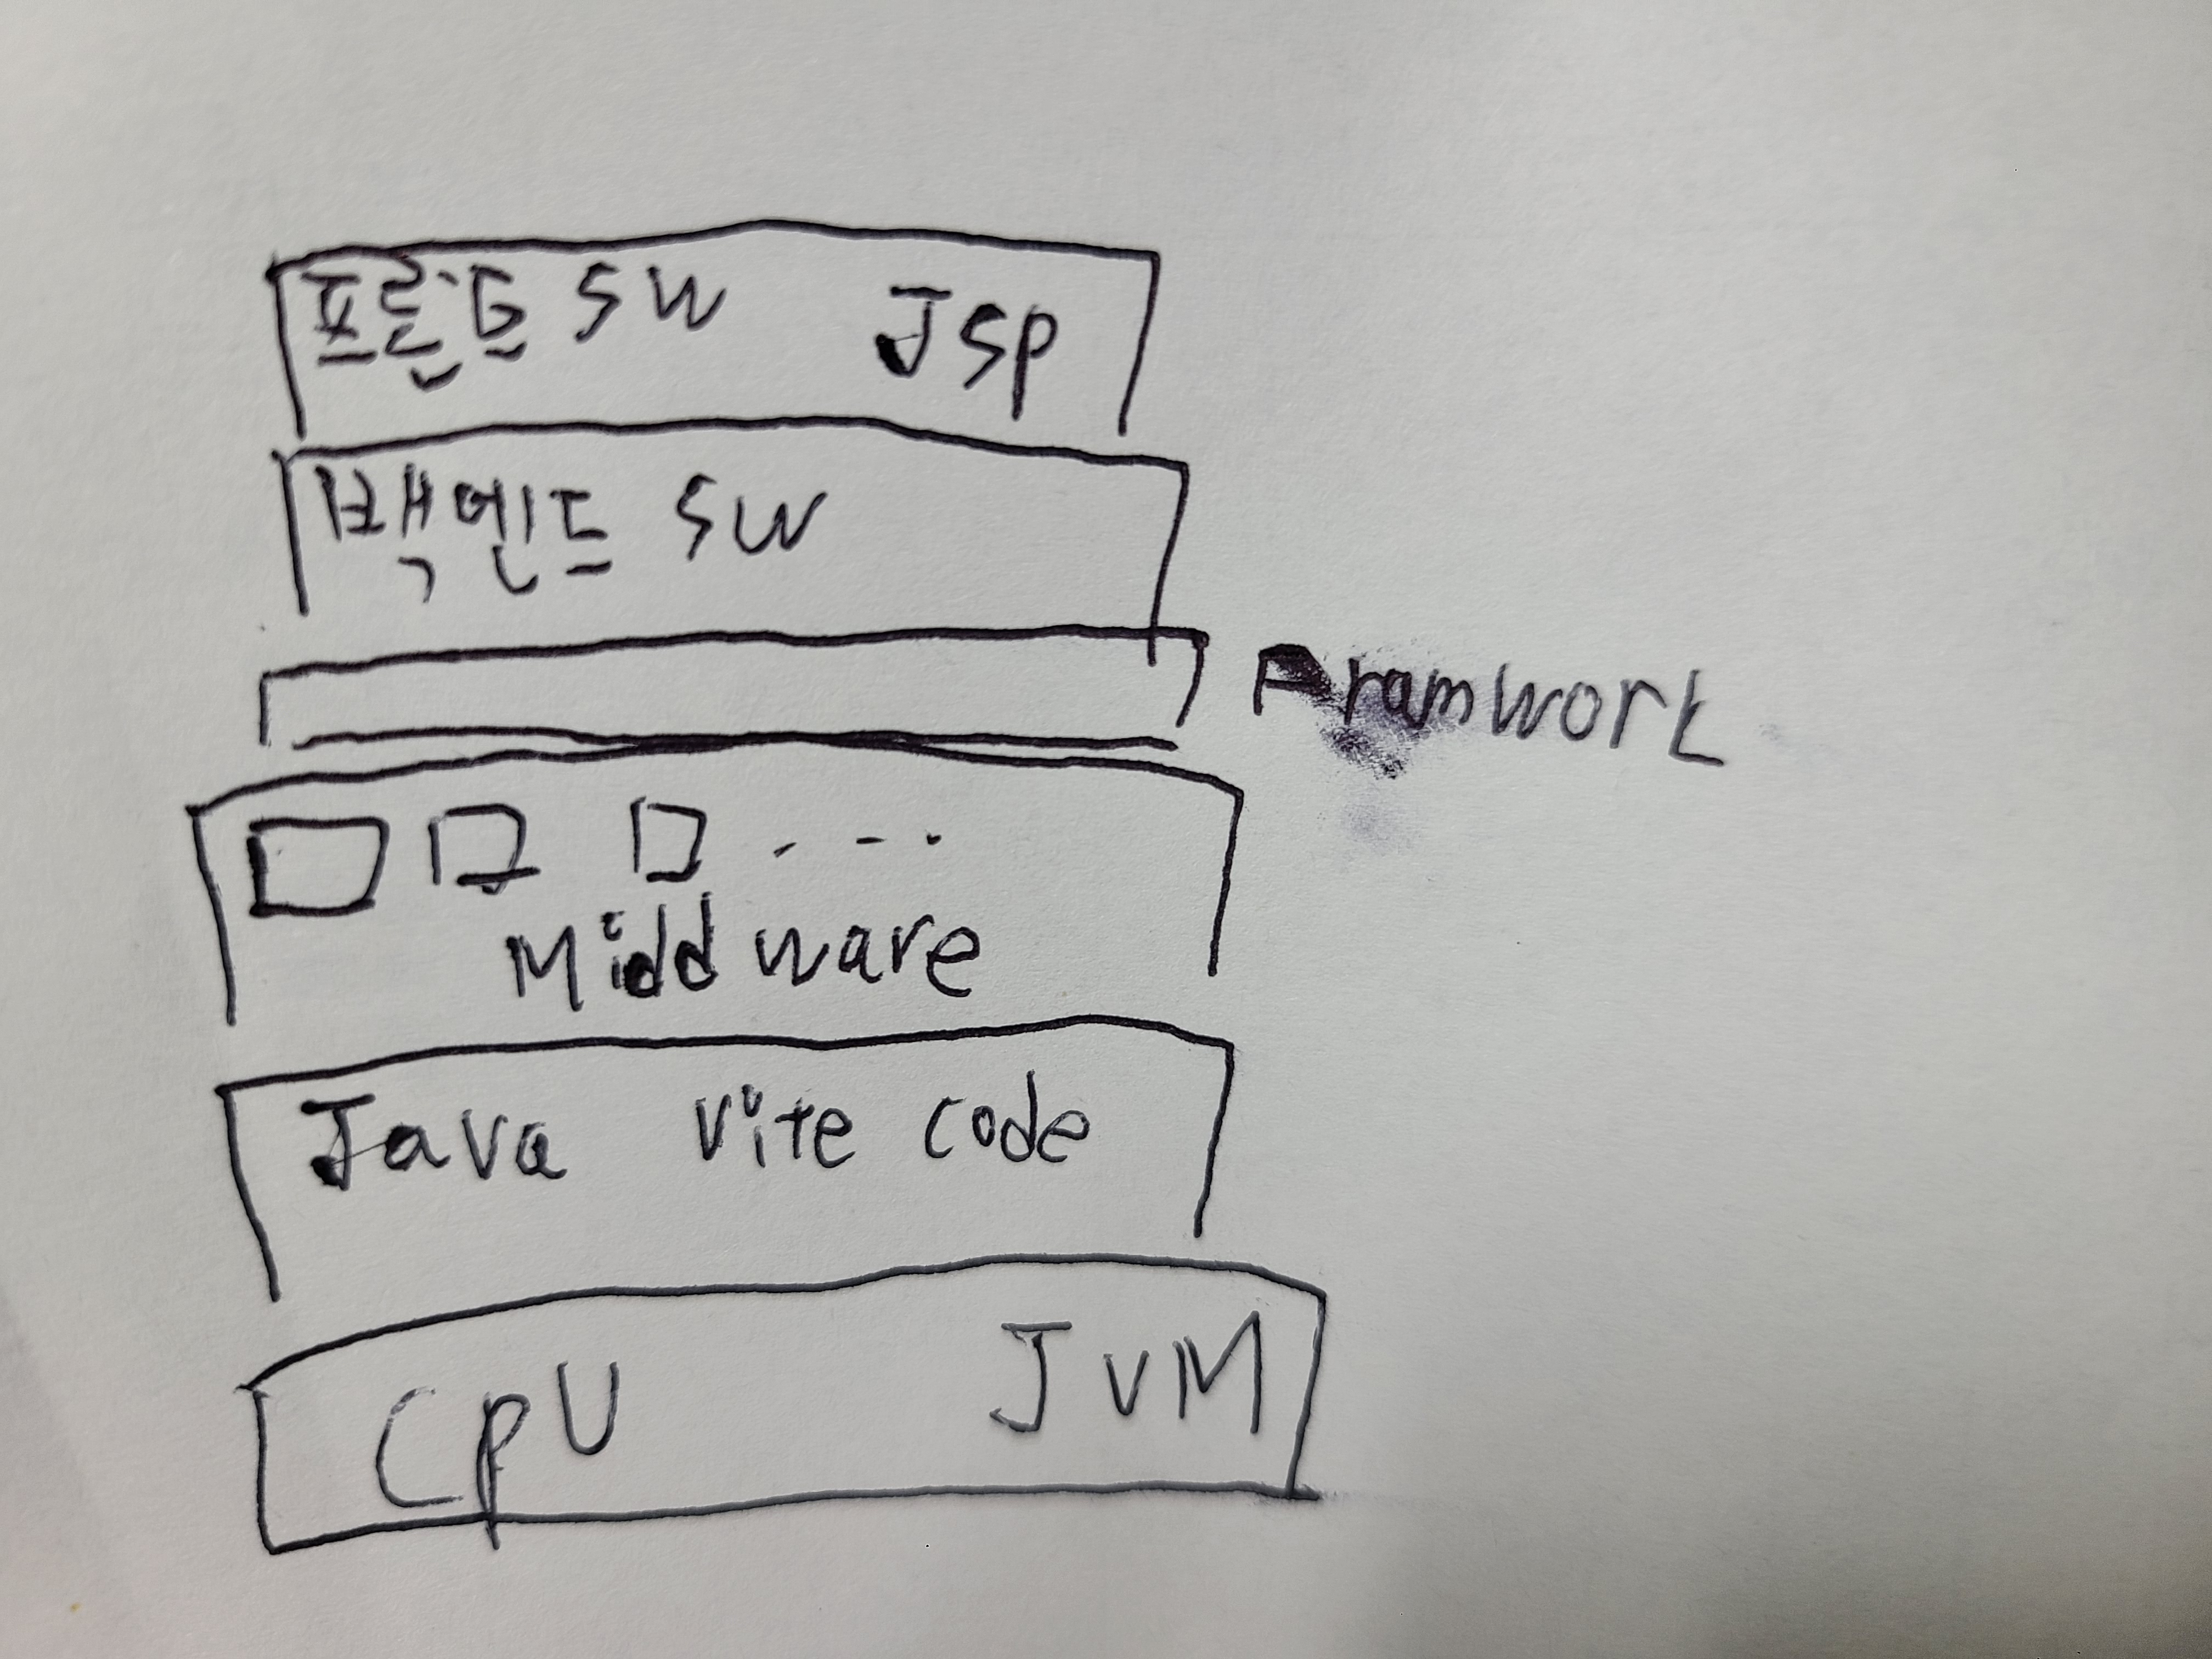 프론트 SW JSP
백엔드 SW
Framwork
Midd ware
Java Vite code
CPU JVM